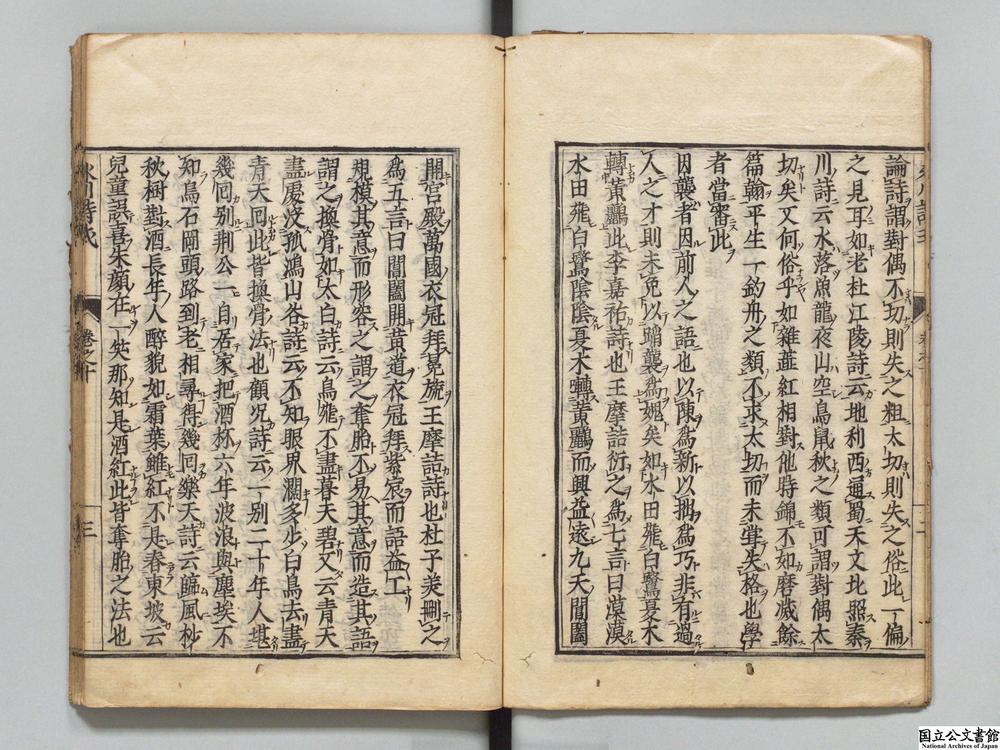 論詩謂對偶不切則失之粗太切則失之俗此一偏
之見耳如老杜江陵詩云地利西通蜀天文北照秦
川詩云水落魚龍夜山空鳥鼠秋之類可謂對偶太
切矣又何俗乎如雜蕋紅相對他時錦不如磨滅餘
篇翰平生一釣舟之類不求太切而未甞失格也學
者當審此
因襲者因前人之語也以陳為新以拙為巧非有過
人之才則未免以蹈襲為媿矣如水田飛白鷺夏木
轉黃鸝此李嘉祐詩也王摩詰衍之為七言曰漠漠
水田飛白鷺陰陰夏木囀黃鸝而興益遠九天閶闔
開宮殿萬國衣冠拜冕旒王摩詰詩也杜子美刪之
為五言曰閶闔開黃道衣冠拜紫宸而語益工
規模其意而形容之謂之奪胎不易其意而造其語
謂之換骨如太白詩云鳥飛不盡暮天碧又云青天
盡處没孤鴻山谷詩云不知眼界濶多少白鳥去盡
青天回此皆換骨法也顧况詩云一別二十年人堪
幾回別荆公一自居家把酒杯六年波浪與塵埃不
知烏石岡頭路到老相尋得幾回樂天詩云臨風杪
秋樹對酒長年人醉貌如霜葉雖紅不是春東坡云
兒童誤喜朱顔在一笑那知是酒紅此皆奪胎之法也
卷之十
三
国立公文書館
National Archives of Japan